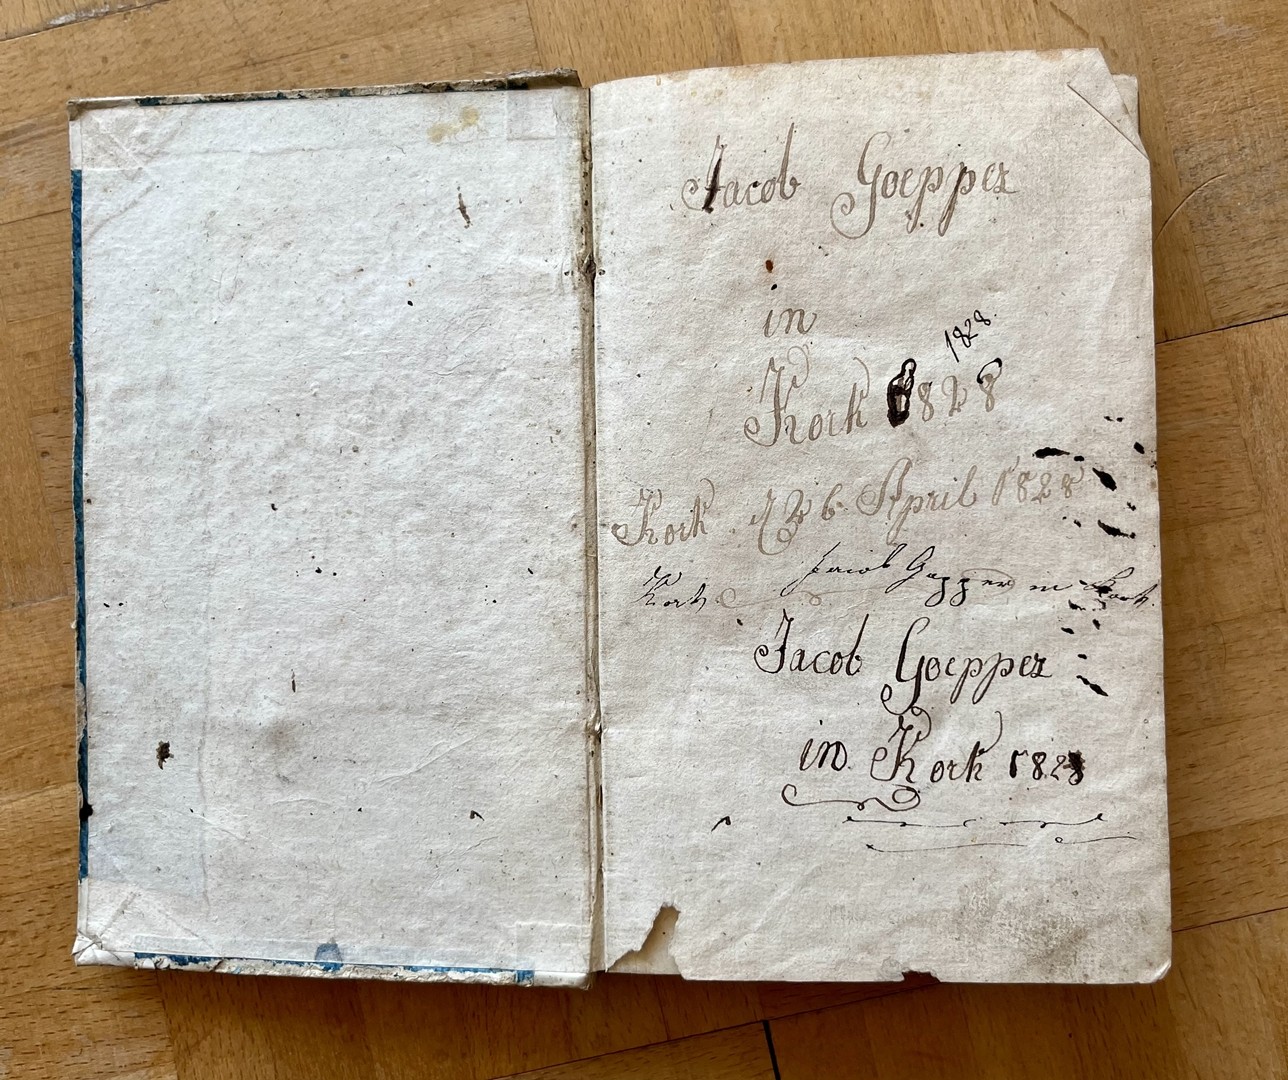 Jacob Goepper
in
1828.
Kork 1828
Kork April 1828
Jacob Gopper in Kork.
Kork
Jacob Goepper
in Kork 1828